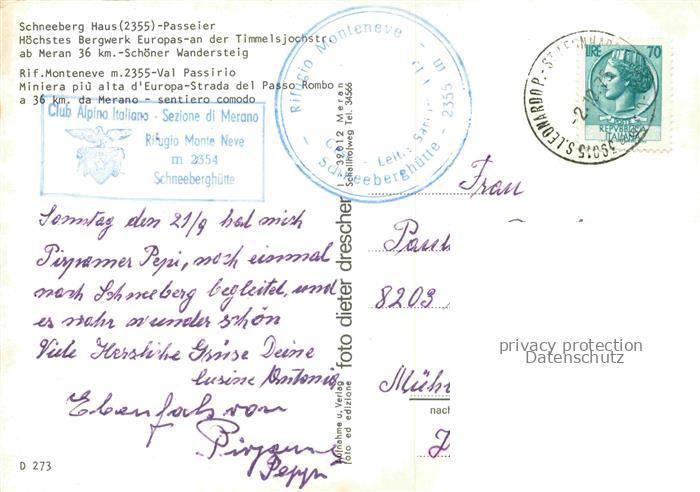 Schneeberg Haus(2355)-Passeier
Höchstes Bergwerk Europas-an der Timmelsjochstr.
ab Meran 36 km.-Schöner Wandersteig
Rif.Monteneve m.2355-Val Passirio
Miniera più alta d'Europa-Strada del Passo Rombo
a 36 km. da Merano - sentiero comodo
Club Alpino Italiano - Sezione di Merano
Rifugio Monte Neve
m 2354
Schneeberghütte
Rifugio Monteneve - m 2355 -
Schneeberghütte
LIRE 70
REPVBBLICA
ITALIANA
39015 S. LEONARDO P. - ST. LEONHARD
Sonntag den 21/9 hat mich
Pirpamer Pepi, noch einmal
nach Schneeberg begleitet, und
es wahr wunder schön
Viele Herzliche Grüse Deine
Cusine Antonia
Ebenfals von
Pirpamer
Peppi
Frau
8203
Müh
nach
D 273
Aufnahme u. Verlag
foto ed edizione
foto dieter drescher
I - 39012 Meran
Schallhofweg Tel. 34566
privacy protection
Datenschutz